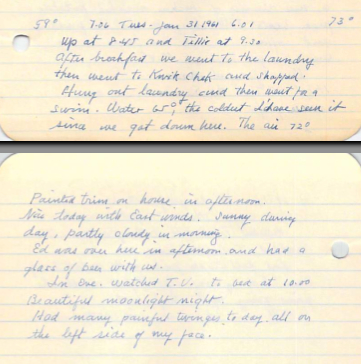 59° 7.06 Tues. Jan 31 1961 6.01 73°
Up at 8.45 and Tillie at 9.20
After breakfast we went to the laundry
then went to Kwik Chek and shopped.
Hung out laundry and then went for a
swim. Water 65°, the coldest I have seen it
since we got down here. The air 72°
Painted trim on house in afternoon.
Nice today with East winds. Sunny during
day, partly cloudy in morning.
Ed was over here in afternoon and had a
glass of beer with us.
In Eve. watched T.V. to bed at 10.00
Beautiful moonlight night.
Had many painful twinges to day all on
the left side of my face.